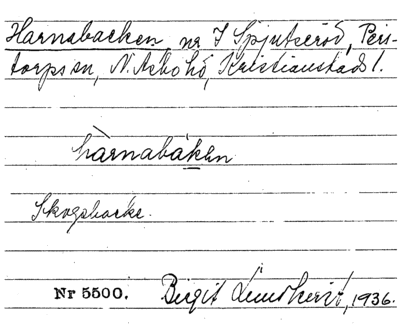 Harnabacken, nr I Spjutseröd, Pers-
torps sn, N. Asbo hd, Kristianstads l.
hàrnabákan
Skogsbacke.
Nr 5500. Birgit Lundkvist, 1936.